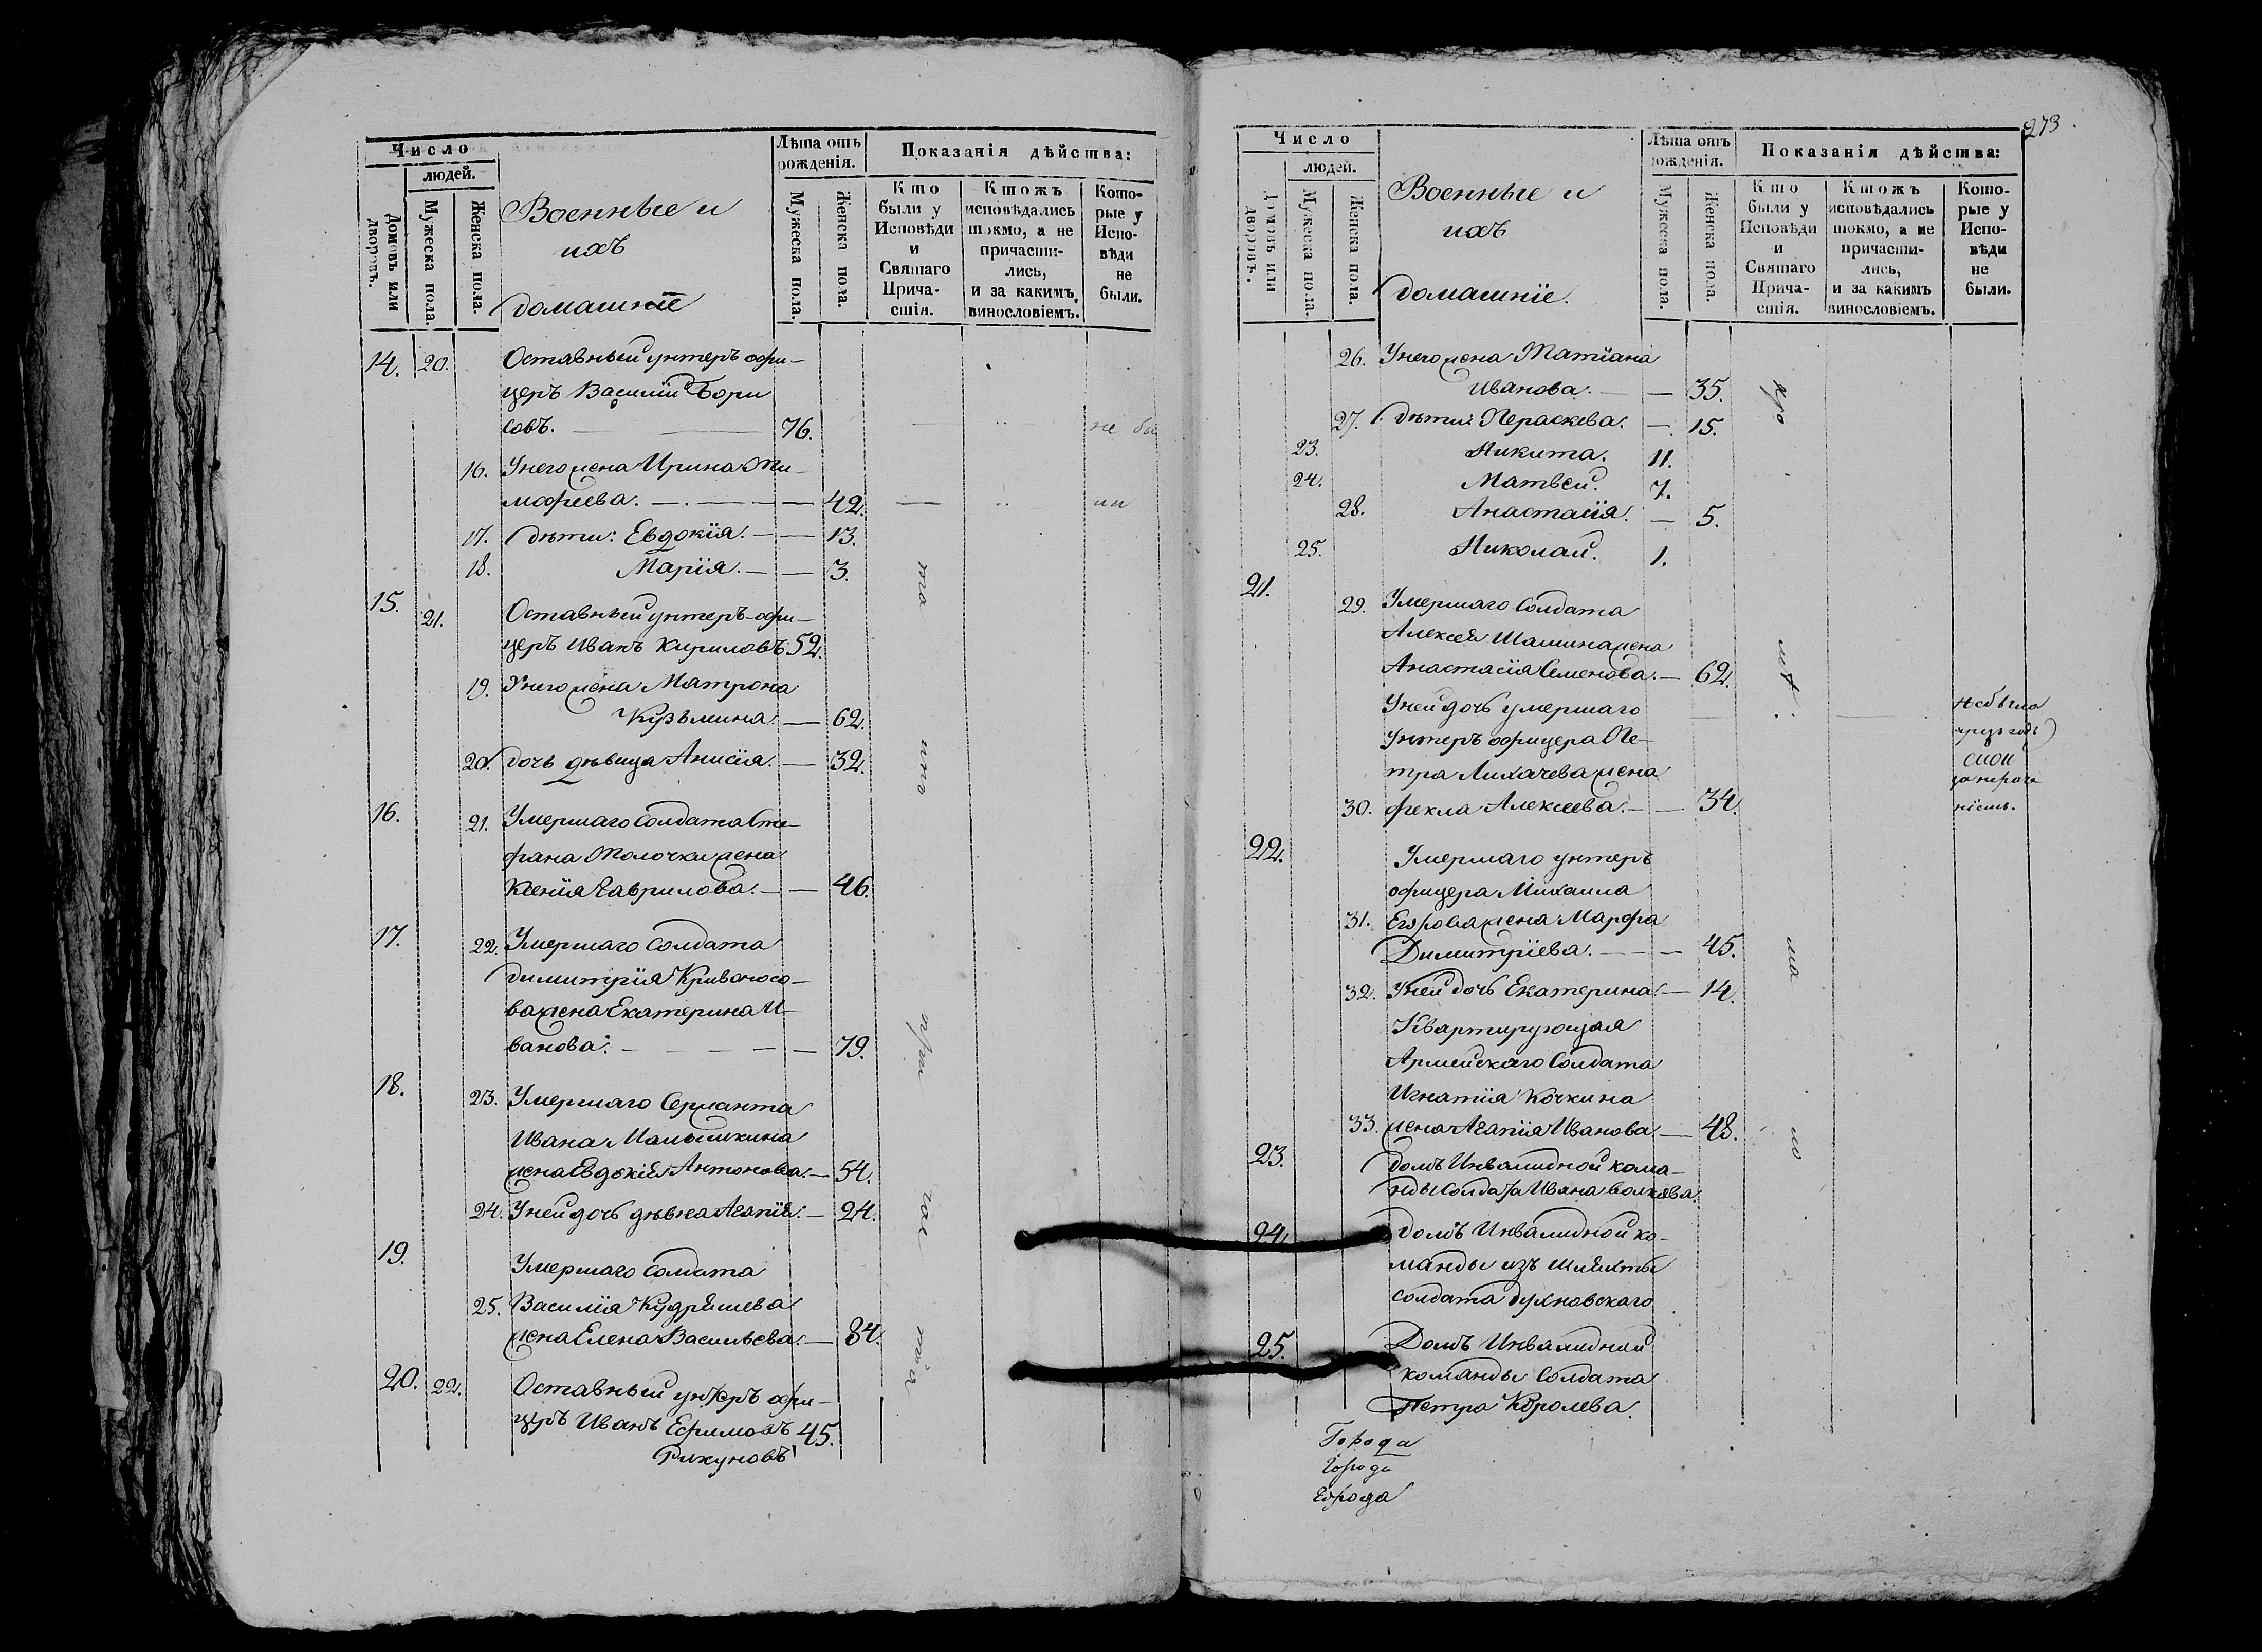 Число
людей.
Домовъ или дворовъ.
Мужеска пола.
Женска пола.
Военные и
ихъ
домашніе
Лѣта отъ
рожденія.
Мужеска пола.
Женска пола.
Показанія дѣйства:
Кто
были у
Исповѣди
и
Святаго
Прича-
стія.
Ктожъ
исповѣдались
токмо, а не
причасти-
лись,
и за какимъ
винословіемъ.
Кото-
рые у
Испо-
вѣди
не
были.
14. 20. Оставный унтеръ офи-
церъ Василій Бори
совъ. 76. не бы
16. У него жена Ирина Ти-
мофеева. 42. ли
17. дѣти: Евдокія. 13.
18. Марія. 3.
15. 21. Оставный унтеръ-офи-
церъ Иванъ Кириловъ 52.
19. У него жена Матрона
Кузьмина. 62.
20. дочь дѣвица Анисія. 32.
16. 21. Умершаго Солдата Сте-
фана Толочки жена
Ксенія Гаврилова. 46.
17. 22. Умершаго Солдата
Димитрія Кривоносо-
ва жена Екатерина И-
ванова. 79.
18. 23. Умершаго Сержанта
Ивана Малышкина
жена Евдокія Антонова. 54.
24. У ней дочь дѣвка Агапія. 24.
19. Умершаго Солдата
25. Василія Кудряшева
жена Елена Васильева. 84.
20. 22. Оставный унтеръ офи-
церъ Иванъ Ефимовъ 45.
Рикуновъ
273.
Число
людей.
Домовъ или дворовъ.
Мужеска пола.
Женска пола.
Военные и
ихъ
домашніе.
Лѣта отъ
рожденія.
Мужеска пола.
Женска пола.
Показанія дѣйства:
Кто
были у
Исповѣди
и
Святаго
Прича-
стія.
Ктожъ
исповѣдались
токмо, а не
причасти-
лись,
и за какимъ
винословіемъ.
Кото-
рые у
Испо-
вѣди
не
были.
26. У него жена Татіана
Иванова. 35.
27. дѣти: Пераскева. 15.
23. Никита. 11.
24. Матвей. 7.
28. Анастасія. 5.
25. Николай. 1.
21. 29. Умершаго Солдата
Алексея Шашина жена
Анастасія Семенова. 62.
У ней дочь умершаго не была
Унтеръ офицера Пе-
тра Лихачева жена
30. фекла Алексеева. 34.
22. Умершаго унтеръ
офицера Михаила
31. Егорова жена Марфа
Димитріева. 45.
32. У ней дочь Екатерина. 14.
Квартирующая
Армейскаго Солдата
Игнатія Кочкина
33. жена Агапія Иванова. 48.
23. домъ Инвалидной кома-
нды Солдата Ивана Волкова.
24. домъ Инвалидной ко-
манды изъ шляхты
солдата Духновскаго
25. Домъ Инвалидной
команды Солдата
Петра Королева.
Города
Города
Города